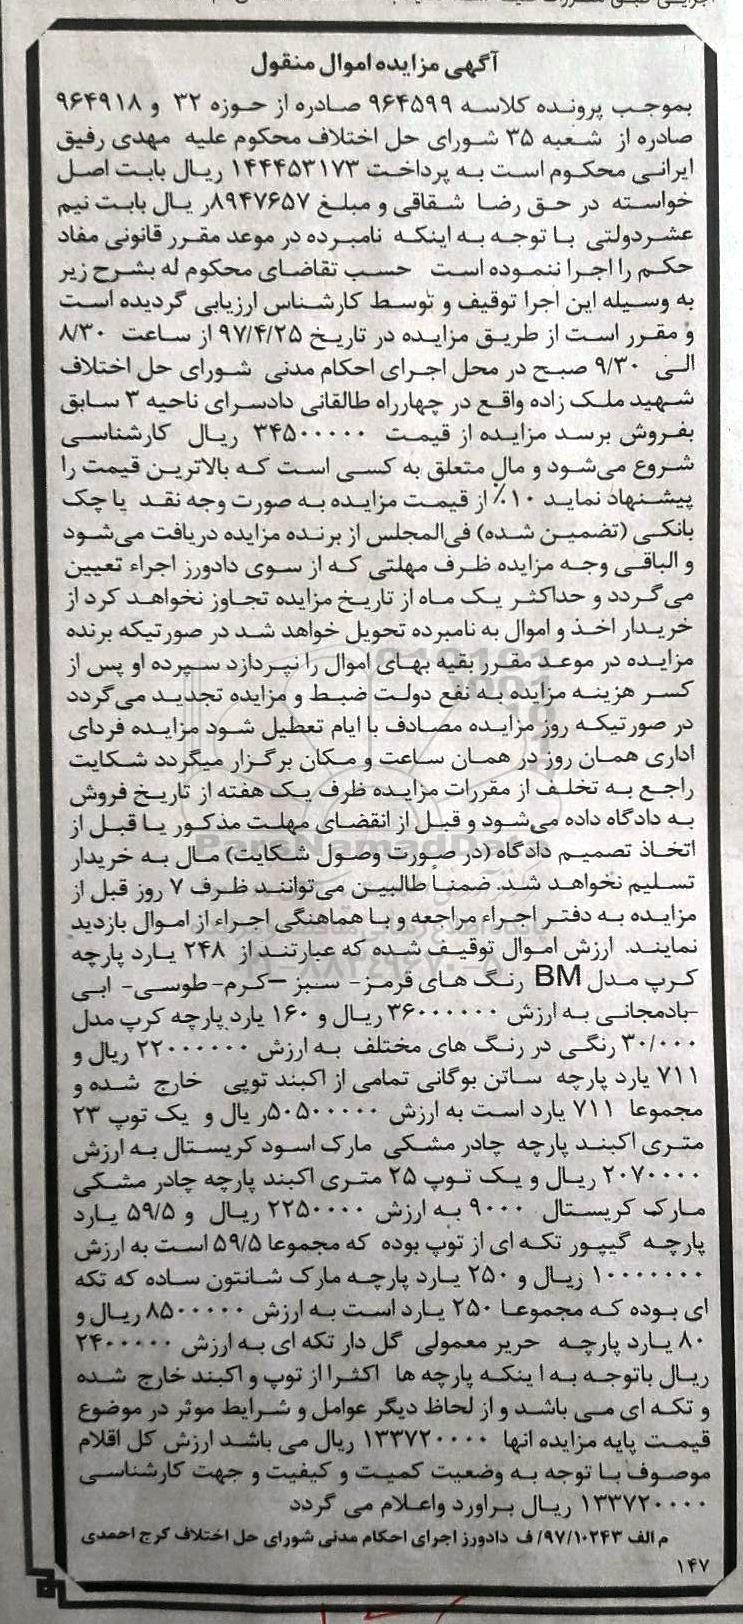 آگهی مزایده اموال منقول
بموجب پرونده کلاسه ۹۶۴۵۹۹ صادره از حوزه ۳۲ و ۹۶۴۹۱۸
صادره از شعبه ۳۵ شورای حل اختلاف محکوم علیه مهدی رفیق
ایرانی محکوم است به پرداخت ۱۴۴۴۵۳۱۷۳ ریال بابت اصل
خواسته در حق رضا شقاقی و مبلغ ۸۹۴۷۶۵۷ر یال بابت نیم
عشردولتی با توجه به اینکه نامبرده در موعد مقرر قانونی مفاد
حکم را اجرا ننموده است حسب تقاضای محکوم له بشرح زیر
به وسیله این اجرا توقیف و توسط کارشناس ارزیابی گردیده است
و مقرر است از طریق مزایده در تاریخ ۹۷/۴/۲۵ از ساعت ۸/۳۰
الی ۹/۳۰ صبح در محل اجرای احکام مدنی شورای حل اختلاف
شهید ملک زاده واقع در چهارراه طالقانی دادسرای ناحیه ۳ سابق
بفروش برسد مزایده از قیمت ۳۴۵۰۰۰۰۰ ریال کارشناسی
شروع می‌شود و مال متعلق به کسی است که بالاترین قیمت را
پیشنهاد نماید ۱۰٪ از قیمت مزایده به صورت وجه نقد یا چک
بانکی (تضمین شده) فی‌المجلس از برنده مزایده دریافت می‌شود
و الباقی وجه مزایده ظرف مهلتی که از سوی دادورز اجراء تعیین
می‌گردد و حداکثر یک ماه از تاریخ مزایده تجاوز نخواهد کرد از
خریدار اخذ و اموال به نامبرده تحویل خواهد شد در صورتیکه برنده
مزایده در موعد مقرر بقیه بهای اموال را نپردازد سپرده او پس از
کسر هزینه مزایده به نفع دولت ضبط و مزایده تجدید می‌گردد
در صورتیکه روز مزایده مصادف با ایام تعطیل شود مزایده فردای
اداری همان روز در همان ساعت و مکان برگزار میگردد شکایت
راجع به تخلف از مقررات مزایده ظرف یک هفته از تاریخ فروش
به دادگاه داده می‌شود و قبل از انقضای مهلت مذکور یا قبل از
اتخاذ تصمیم دادگاه (در صورت وصول شکایت) مال به خریدار
تسلیم نخواهد شد. ضمناً طالبین می‌توانند ظرف ۷ روز قبل از
مزایده به دفتر اجراء مراجعه و با هماهنگی اجراء از اموال بازدید
نمایند. ارزش اموال توقیف شده که عبارتند از ۲۴۸ یارد پارچه
کرپ مدل BM رنگ های قرمز- سبز –کرم- طوسی- ابی
-بادمجانی به ارزش ۳۶۰۰۰۰۰۰ ریال و ۱۶۰ یارد پارچه کرپ مدل
۳۰/۰۰۰ رنگی در رنگ های مختلف به ارزش ۲۲۰۰۰۰۰۰ ریال و
۷۱۱ یارد پارچه ساتن بوگانی تمامی از اکبند توپی خارج شده و
مجموعا ۷۱۱ یارد است به ارزش ۵۰۵۰۰۰۰۰ر یال و یک توپ ۲۳
متری اکبند پارچه چادر مشکی مارک اسود کریستال به ارزش
۲۰۷۰۰۰۰ ریال و یک توپ ۲۵ متری اکبند پارچه چادر مشکی
مارک کریستال ۹۰۰۰ به ارزش ۲۲۵۰۰۰۰ ریال و ۵۹/۵ یارد
پارچه گیپور تکه ای از توپ بوده که مجموعا ۵۹/۵ است به ارزش
۱۰۰۰۰۰۰۰ ریال و ۲۵۰ یارد پارچه مارک شانتون ساده که تکه
ای بوده که مجموعا ۲۵۰ یارد است به ارزش ۸۵۰۰۰۰۰ ریال و
۸۰ یارد پارچه حریر معمولی گل دار تکه ای به ارزش ۲۴۰۰۰۰۰
ریال باتوجه به اینکه پارچه ها اکثرا از توپ و اکبند خارج شده
و تکه ای می باشد و از لحاظ دیگر عوامل و شرایط موثر در موضوع
قیمت پایه مزایده انها ۱۳۳۷۲۰۰۰۰ ریال می باشد ارزش کل اقلام
موصوف با توجه به وضعیت کمیت و کیفیت و جهت کارشناسی
۱۳۳۷۲۰۰۰۰ ریال براورد واعلام می گردد
م الف ۹۷/۱۰۲۴۳/ ف دادورز اجرای احکام مدنی شورای حل اختلاف کرج احمدی
۱۴۷